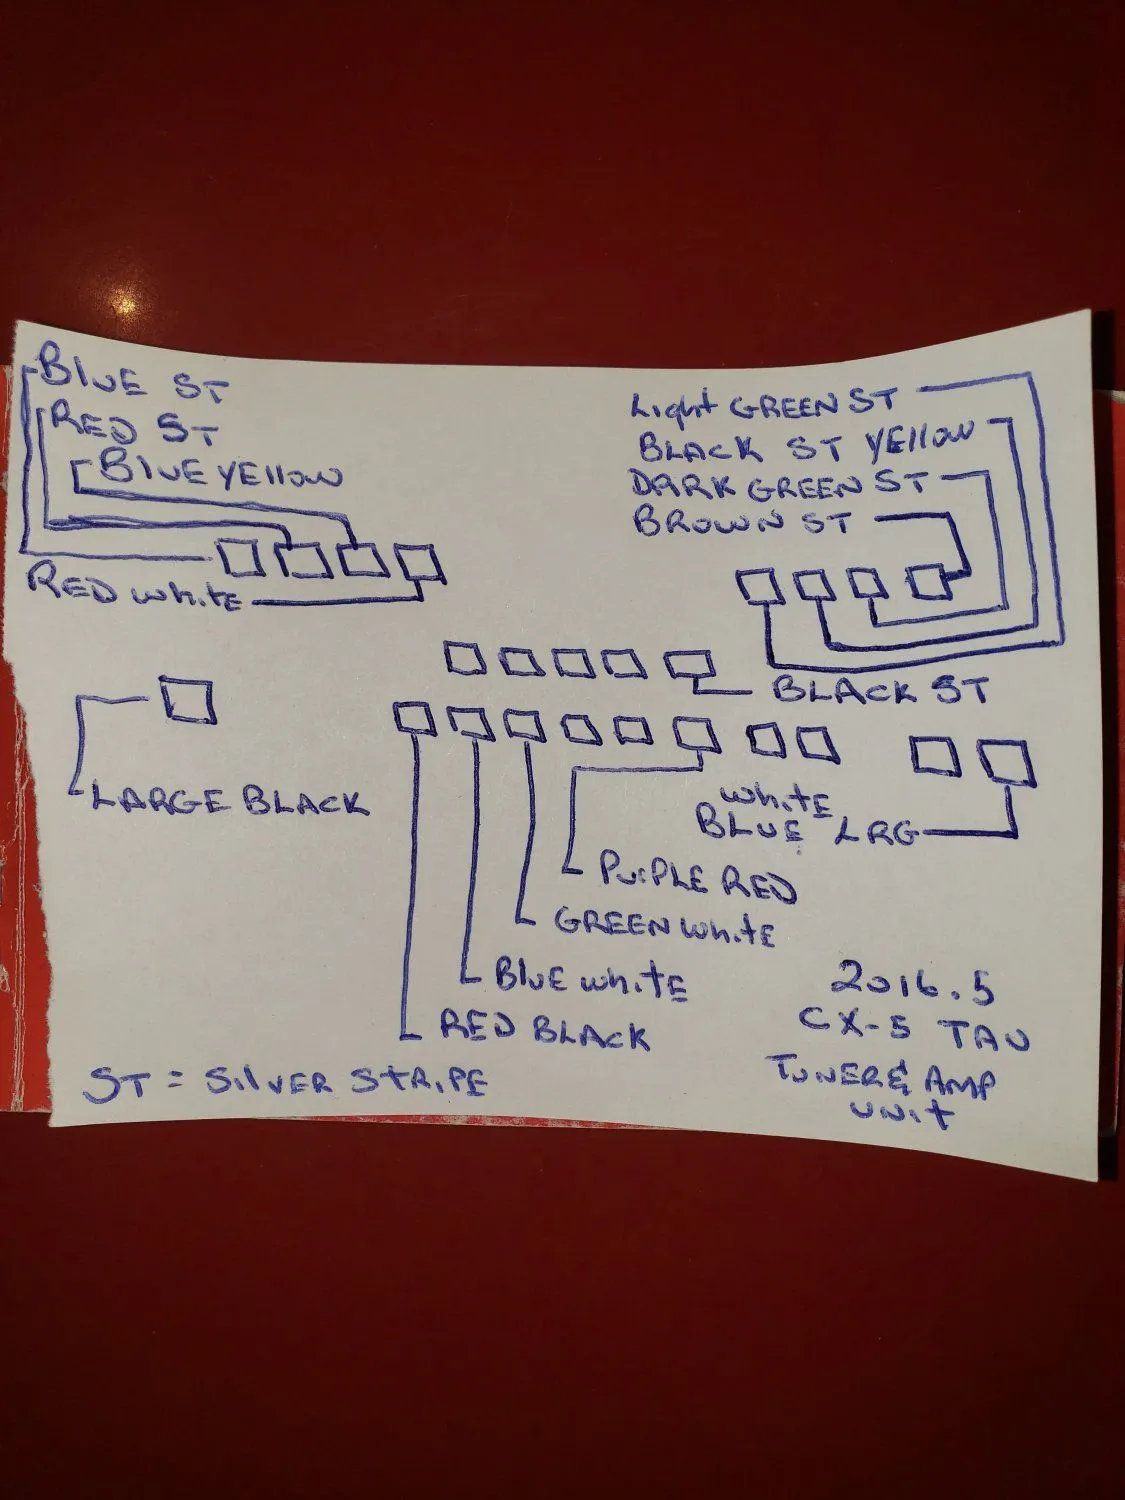 BLUE ST
RED ST
BLUE YELLOW
RED white
Light GREEN ST
BLACK ST YELLOW
DARK GREEN ST
BROWN ST
BLACK ST
LARGE BLACK
white
BLUE LRG
PURPLE RED
GREEN white
BLUE white
RED BLACK
ST = SILVER STRIPE
2016.5
CX-5 TAU
TUNER & AMP
UNIT